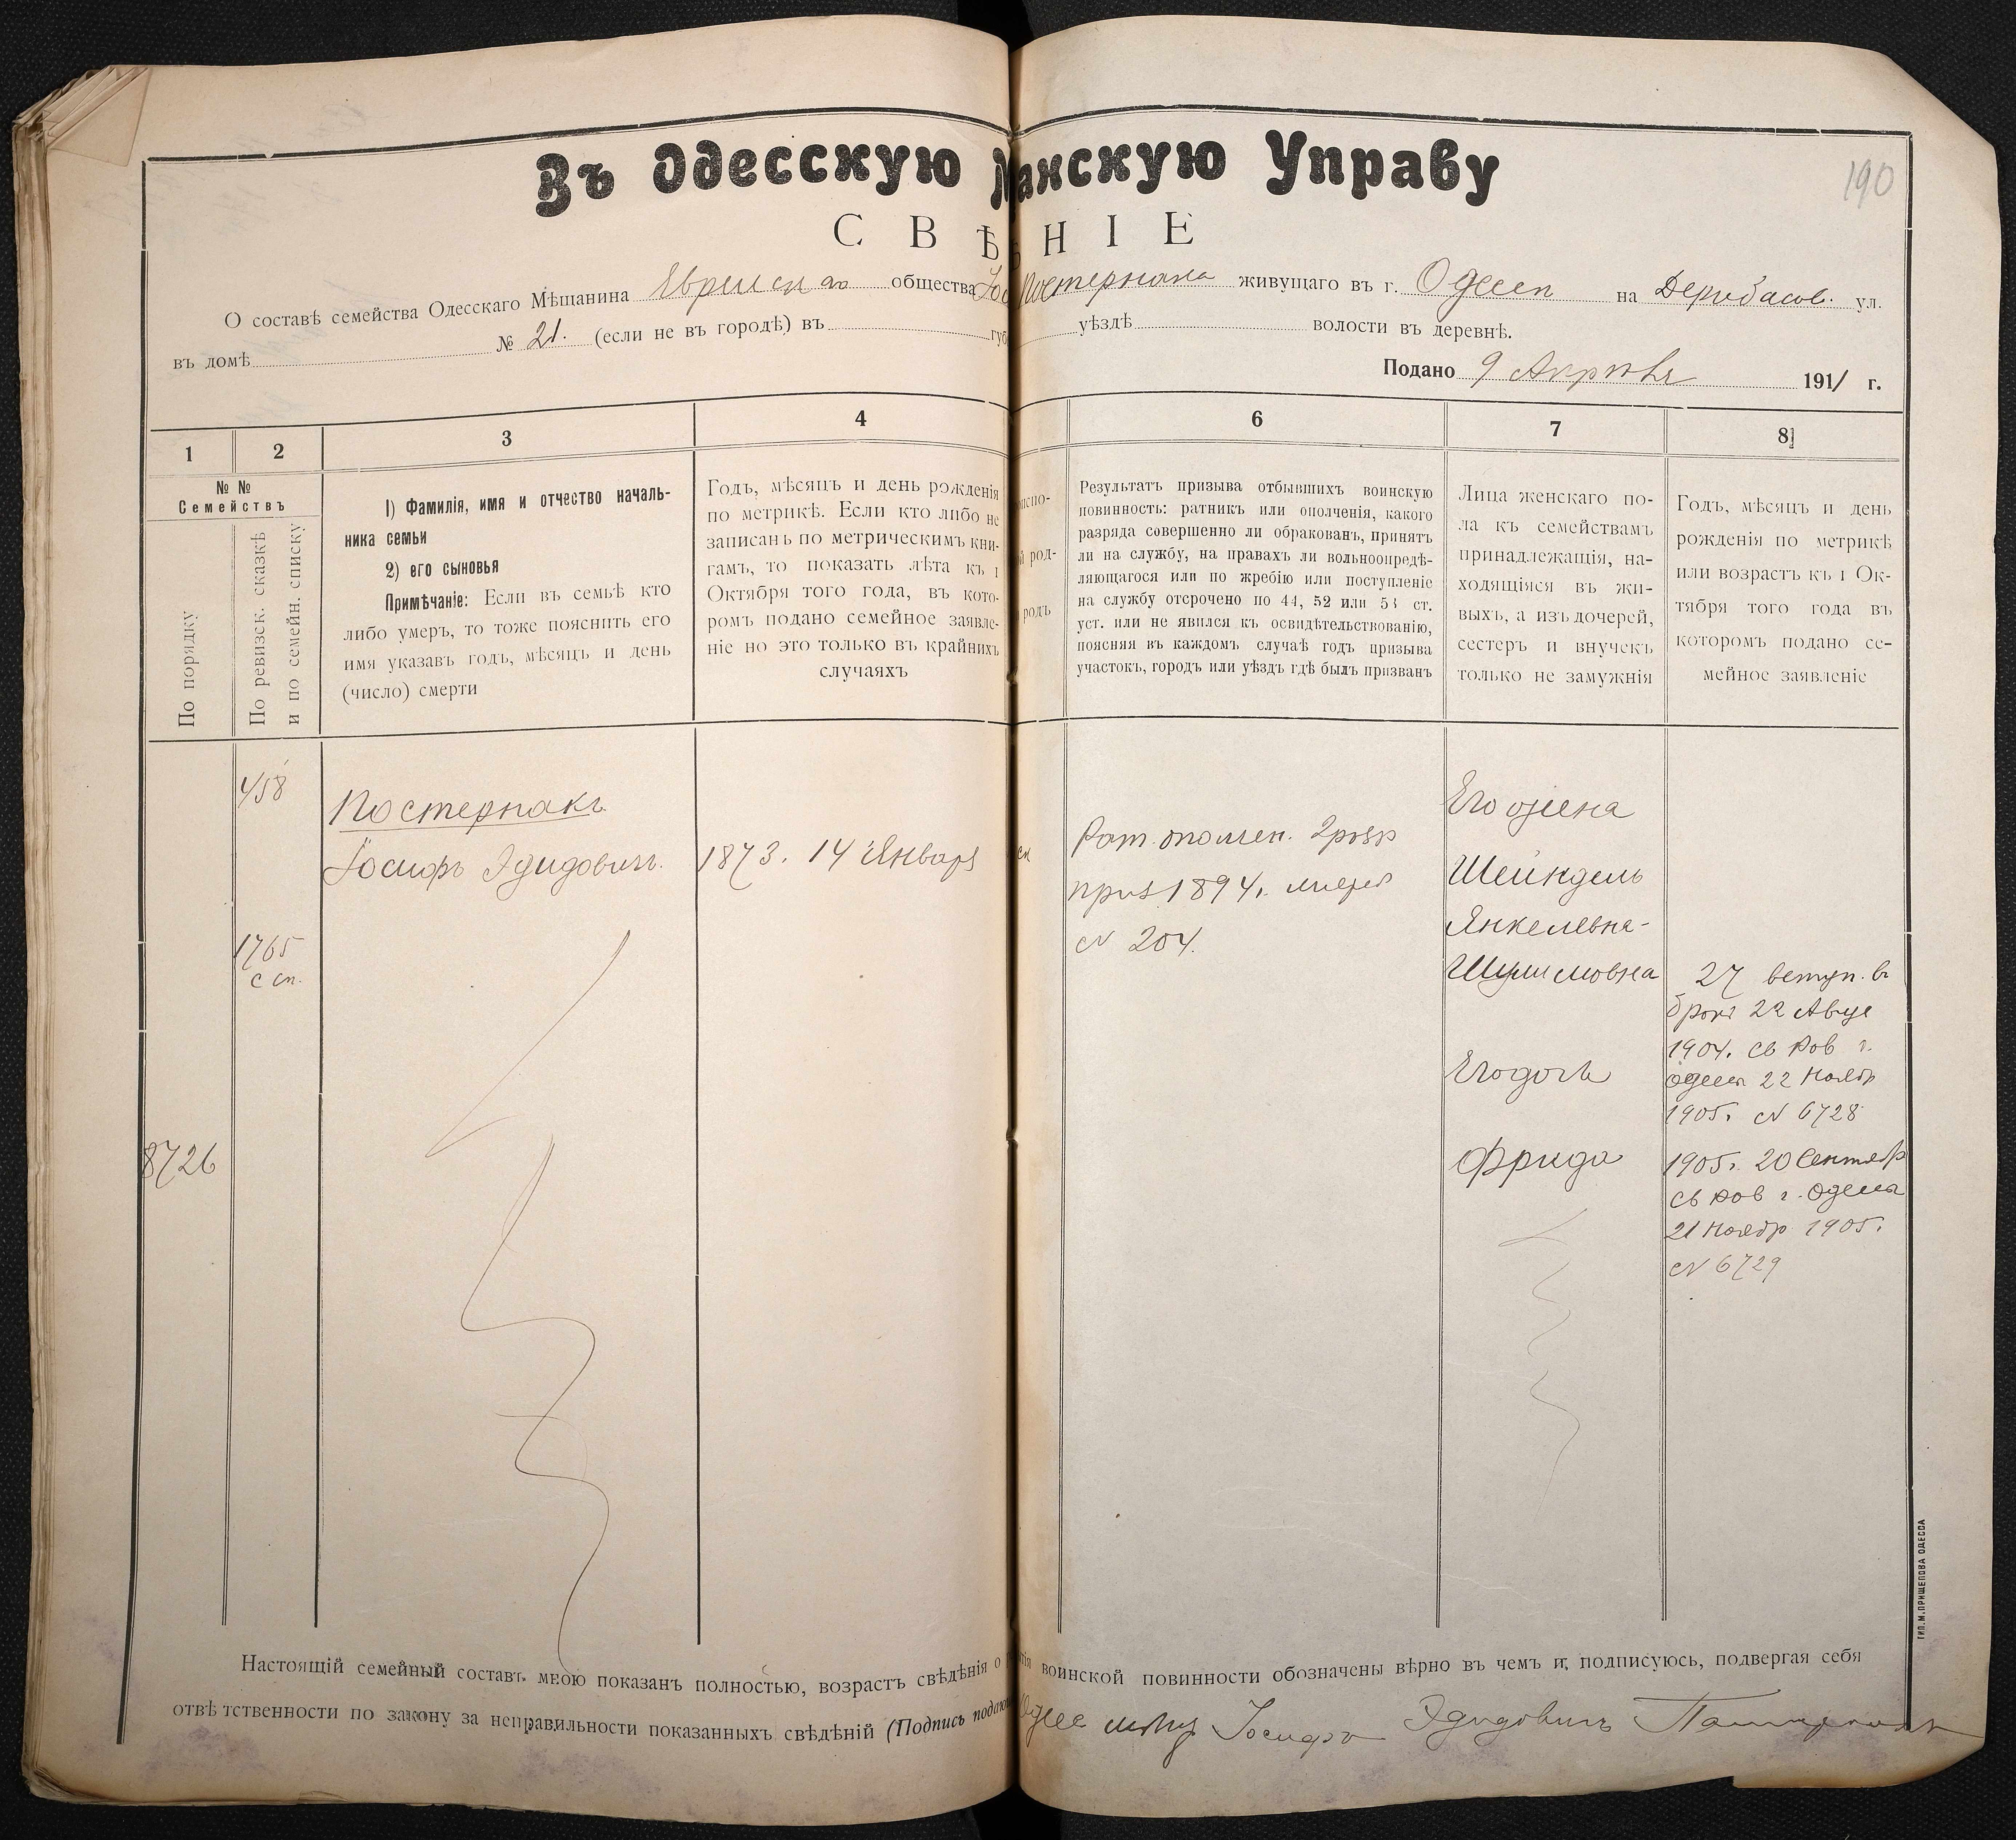 Въ Одесскую М анскую Управу
190
СВѢ НІЕ
О составѣ семейства Одесскаго Мѣщанина Еврейск. общества Іос Постернака живущаго въ г. Одессѣ на Дерибасов. ул.
въ домѣ № 21. (если не въ городѣ) въ губ уѣздѣ волости въ деревнѣ.
Подано 9 Апрѣля 1911 г.
1 2 3 4 6 7 8
№ №
Семействъ
По порядку
По ревизск. сказкѣ
и по семейн. списку
1) Фамилія, имя и отчество началь-
ника семьи
2) его сыновья
Примѣчаніе: Если въ семьѣ кто
либо умеръ, то тоже пояснить его
имя указавъ годъ, мѣсяцъ и день
(число) смерти
Годъ, мѣсяцъ и день рожденія
по метрикѣ. Если кто либо не
записанъ по метрическимъ кни-
гамъ, то показать лѣта къ 1
Октября того года, въ кото-
ромъ подано семейное заявле-
ніе но это только въ крайнихъ
случаяхъ
испо-
й род-
родъ
Результатъ призыва отбывшихъ воинскую
повинность: ратникъ или ополченія, какого
разряда совершенно ли обракованъ, принятъ
ли на службу, на правахъ ли вольноопредѣ-
ляющагося или по жребію или поступленіе
на службу отсрочено по 44, 52 или 53 ст.
уст. или не явился къ освидѣтельствованію,
поясняя въ каждомъ случаѣ годъ призыва
участокъ, городъ или уѣздъ гдѣ былъ призванъ
Лица женскаго по-
ла къ семействамъ
принадлежащія, на-
ходящіяся въ жи-
выхъ, а изъ дочерей,
сестеръ и внучекъ
только не замужнія
Годъ, мѣсяцъ и день
рожденія по метрикѣ
или возрастъ къ 1 Ок-
тября того года въ
которомъ подано се-
мейное заявленіе
458
Постернакъ
Іосифъ Эдидовичъ.
1873. 14 Январ
1765
с сп.
8726
Рат. ополчен. 2 разр
приз 1894 г. жереб
№ 204.
Его жена
Шейндель
Янкелевна-
Шулимовна
Его дочь
Фрида
27 вступ. въ
бракъ 22 Авгус
1904. св Рав г.
Одессы 22 Ноябр
1905. № 6728
1905г. 20 Сентябр
св Рав г. Одессы
21 Ноябр 1905г.
№ 6729
Настоящій семейный составъ мною показанъ полностью, возрастъ свѣдѣнія о ія воинской повинности обозначены вѣрно въ чемъ и подписуюсь, подвергая себя
отвѣтственности по закону за неправильности показанныхъ свѣдѣній (Подпись подаю Одес мѣщ Іосифъ Эдидовичъ Пастернакъ
ТИП. М. ПРИЩЕПОВА ОДЕССА